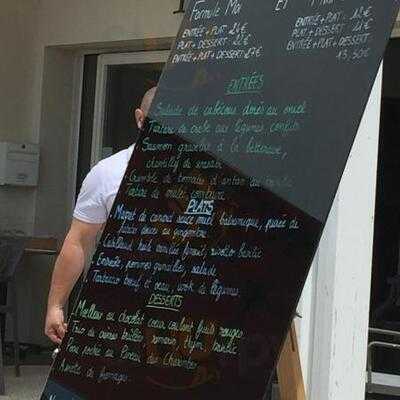 Formule
ENTRÉE + PLAT
PLAT + DESSERT
ENTRÉE + PLAT + DESSERT
ENTRÉE + PLAT 12€
PLAT + DESSERT 11€
ENTRÉE + PLAT + DESSERT
13,50€
ENTRÉES
Salade de cabécous dorés au miel
Tartare de crabe aux légumes confits
Saumon gravelax à la betterave,
chantilly de wasabi
Crumble de tomates d'antan au
Tartare de
PLATS
Magret de canard sauce miel balsamique, purée de
patate douce au gingembre
Cabillaud risotto basilic
Entrecôte, pommes grenailles, salade
bœuf et veau, wok de légumes.
DESSERTS
Moelleux au chocolat coeur coulant fruits rouges
romarin, thym, basilic
Poire pochée au Pineau des Charentes
Assiette de fromages.